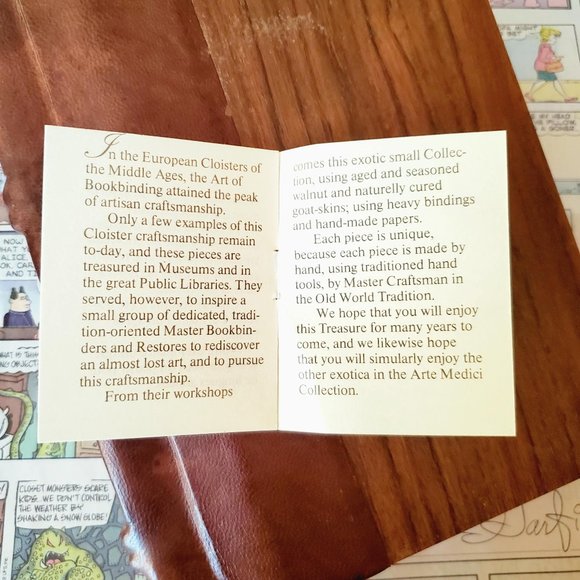 In the European Cloisters of
the Middle Ages, the Art of
Bookbinding attained the peak
of artisan craftsmanship.
Only a few examples of this
Cloister craftsmanship remain
to-day, and these pieces are
treasured in Museums and in
the great Public Libraries. They
served, however, to inspire a
small group of dedicated, tradi-
tion-oriented Master Bookbin-
ders and Restores to rediscover
an almost lost art, and to pursue
this craftsmanship.
From their workshops
comes this exotic small Collec-
tion, using aged and seasoned
walnut and naturelly cured
goat-skins; using heavy bindings
and hand-made papers.
Each piece is unique,
because each piece is made by
hand, using traditioned hand
tools, by Master Craftsman in
the Old World Tradition.
We hope that you will enjoy
this Treasure for many years to
come, and we likewise hope
that you will simularly enjoy the
other exotica in the Arte Medici
Collection.
CLOSET MONSTERS SCARE
KIDS. WE DON'T CONTROL
THE WEATHER BY
SHAKING A SNOW GLOBE!